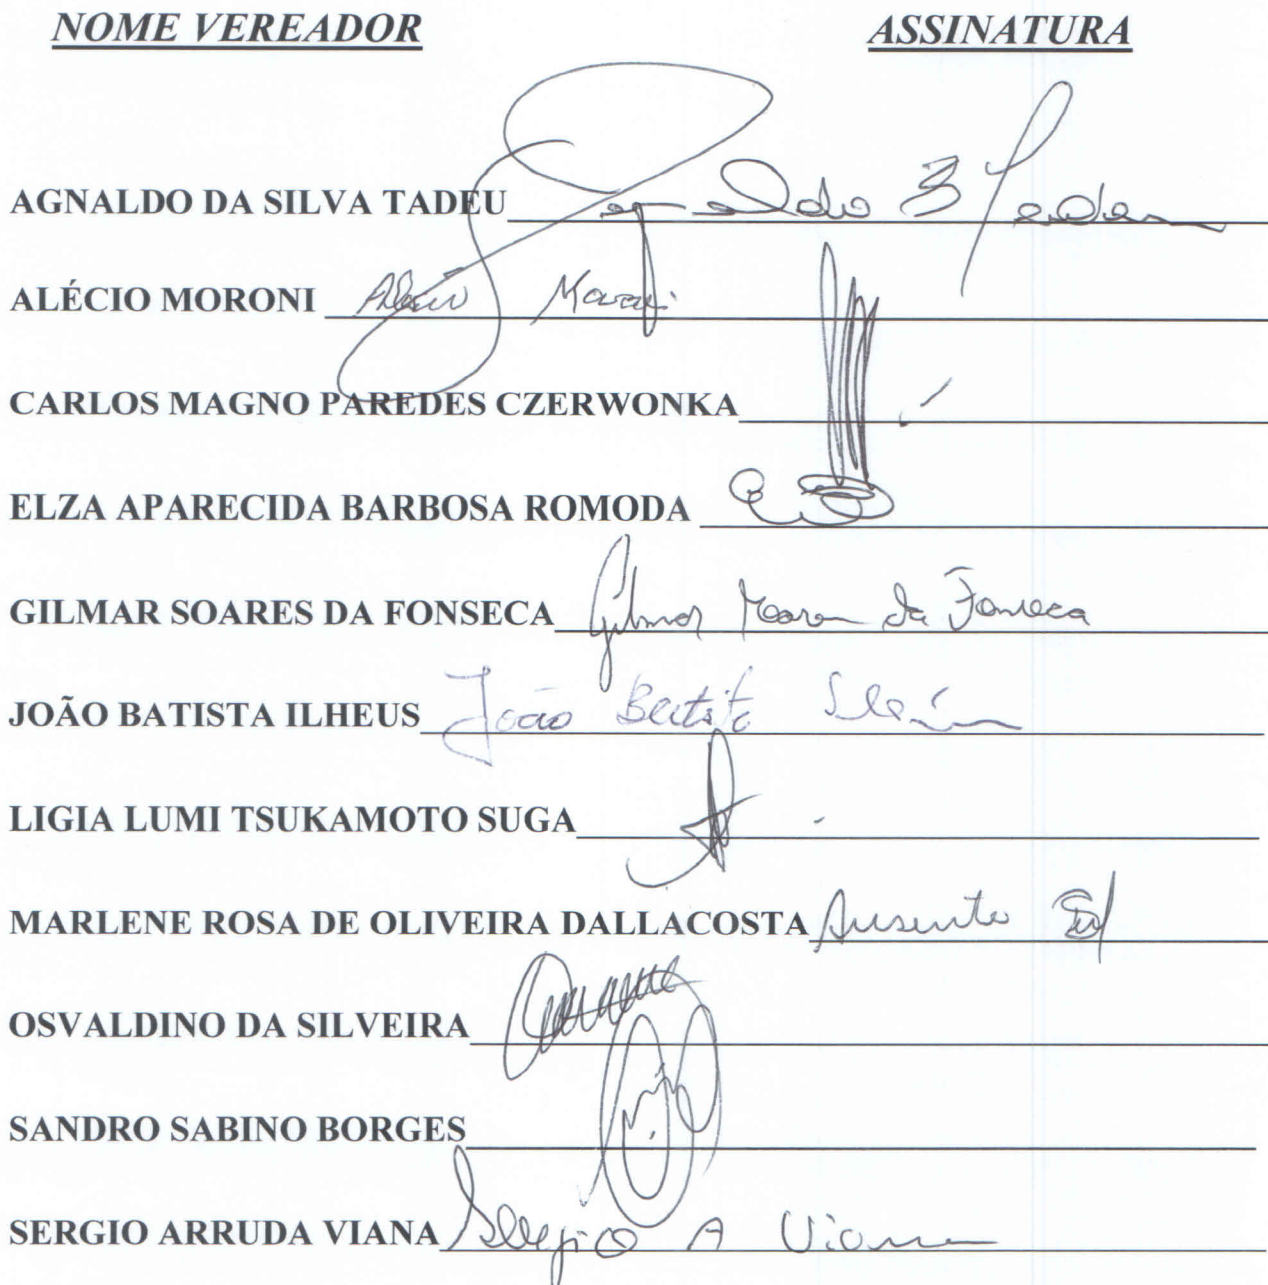 NOME VEREADOR ASSINATURA
AGNALDO DA SILVA TADEU
ALÉCIO MORONI Alécio Moroni
CARLOS MAGNO PAREDES CZERWONKA
ELZA APARECIDA BARBOSA ROMODA
GILMAR SOARES DA FONSECA Gilmar Soares da Fonseca
JOÃO BATISTA ILHEUS João Batista
LIGIA LUMI TSUKAMOTO SUGA
MARLENE ROSA DE OLIVEIRA DALLACOSTA Ausente
OSVALDINO DA SILVEIRA
SANDRO SABINO BORGES
SERGIO ARRUDA VIANA Sergio A Viana